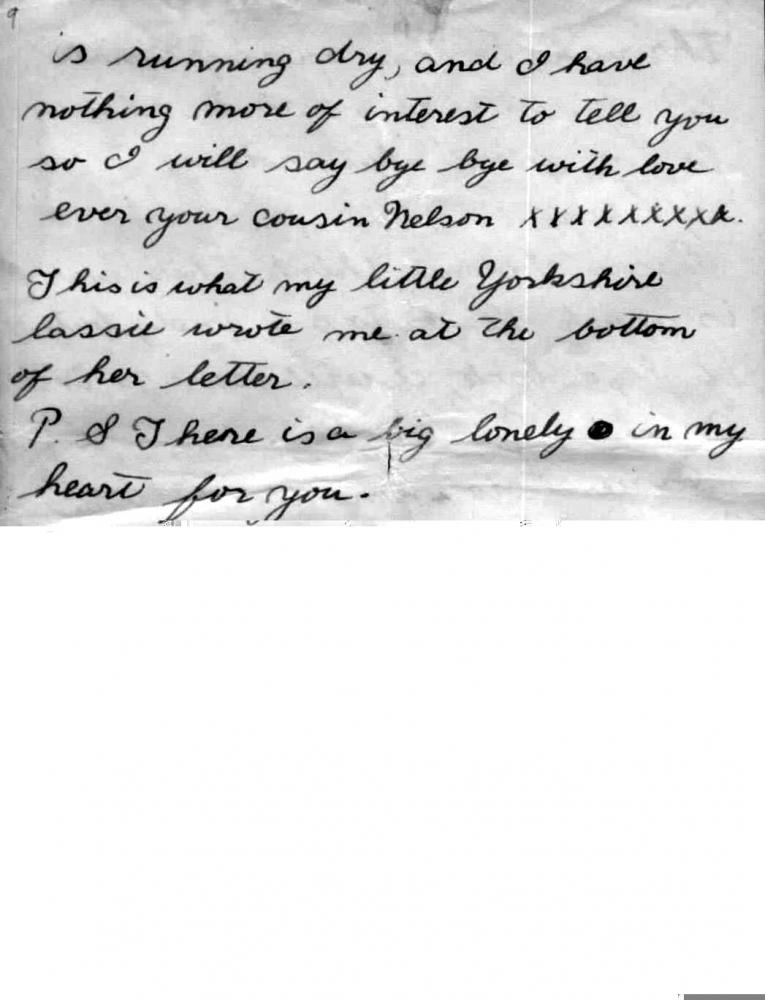 9
is running dry, and I have
nothing more of interest to tell you
so I will say bye bye with love
ever your cousin Nelson xxxxxxxxx.
This is what my little Yorkshire
lassie wrote me at the bottom
of her letter.
P. S There is a big lonely ● in my
heart for you.